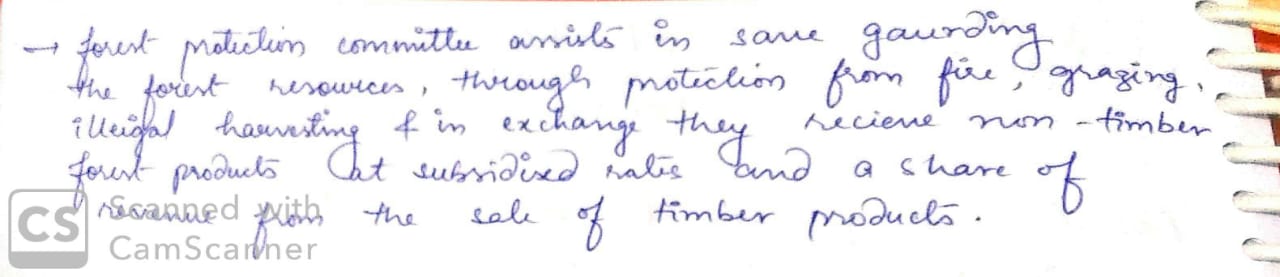 → forest protection committee assists in save gaurding
the forest resources, through protection from fire, grazing,
illeigal harvesting & in exchange they recieve non-timber
forest products at subsidized rates and a share of
revenue from the sale of timber products.
CS Scanned with
CamScanner